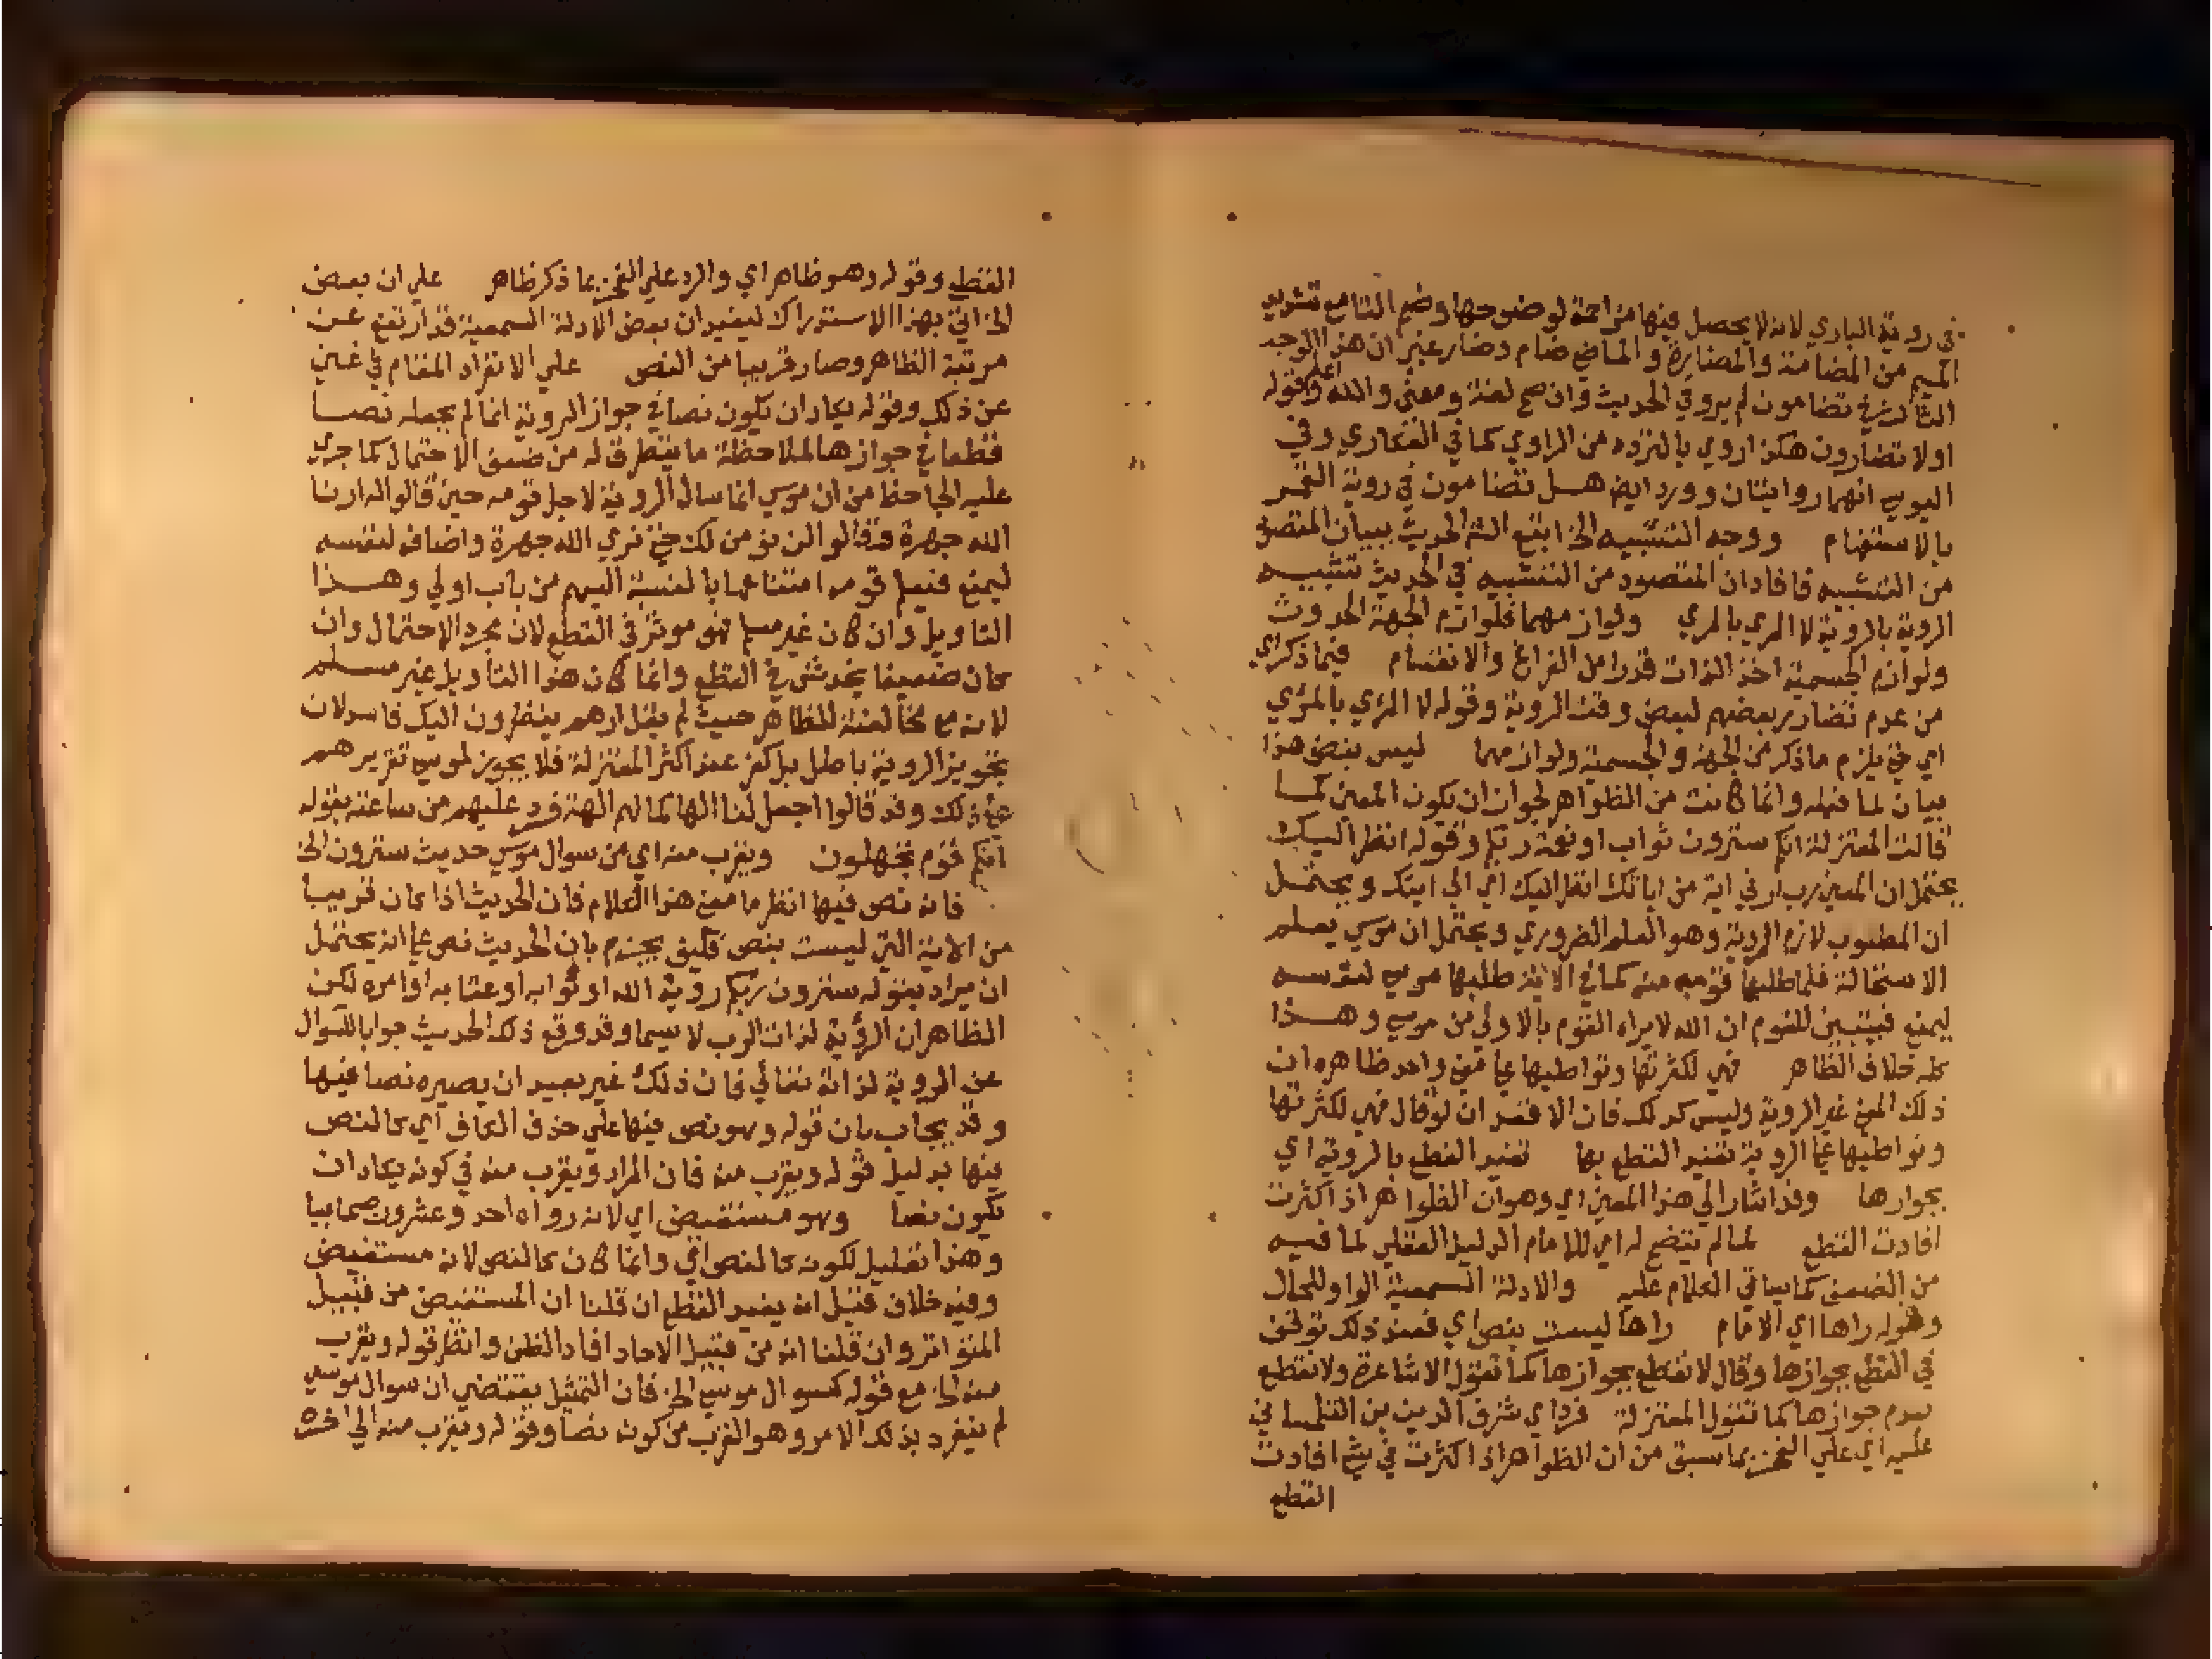 في روية الباري لانه لا يحصل فيها مزاحمة لوضوحها وضم التا مع تشديد
الميم من المضامنة والمضاررة والماضي ضام وضار غير ان هذا الوجه
الثالث في تضامون لم يرو في الحديث وان صح لغة ومعني والله اعلم وقوله
اولا تضارون هكذا روي بالتردد من الراوي كما في الفكاري وفي
اليوسي انهما روايتان وورد ايض هل تضامون في روية القمر
بالاستفهام ووجه التشبيه الخ ابتع الشم الحديث ببيان المقصود
من التشبيه فافاد ان المقصود من التشبيه في الحديث تشبيه
الروية بالروية لا المري بالمري ولوازمهما فلوازم الجهة الحدوث
ولوازم الجسمية اخذ الذات قدرا من الفراغ والانقسام فيما ذكر اي
من عدم تضارر بعضهم لبعض وقت الروية وقوله لا المرئ بالمرئ
اي حتي يلزم ما ذكر من الجهة والجسمية ولوازمهما ليس بنص هذا
بيان لما قبله وانما كانت من الظواهر لجواز ان يكون المعني كما
قالت المعتزلة انكم سترون ثواب او نعمة ربكم وقوله انظر اليك
يحتمل ان المعني رب ارني اية من اياتك انظر اليك اي الي ايتك ويحتمل
ان المطلوب لازم الروية وهو العلم الضروري ويحتمل ان موسي يعلم
الاستحالة فلما طلبها قومه منه كما في الاية طلبها موسي لنفسه
ليمنع فيتبين للقوم ان الله لا يراه القوم بالاولي من موسي وهذا
كله خلاف الظاهر فهي لكثرتها وتواطيها علي معني واحد ظاهره ان
ذلك المعني غير الروية وليس كذلك فان الاقعد ان لو قال فهي لكثرتها
وتواطيها علي الروية تفيد القطع بها تفيد القطع بالروية اي
بجوازها وقد اشار الي هذا المعني اي وهو ان الظواهر اذا كثرت
افادت القطع لما لم يتضح له اي للامام الدليل العقلي لما فيه
من الضعف كما سياتي الكلام عليه والادلة السمعية الواو للحال
وقوله راها اي الامام راها ليست بنص اي فعند ذلك توقف
في القطع بجوازها وقال لا نقطع بجوازها كما تقول الاشاعرة ولا نقطع
بعدم جوازها كما تقول المعتزلة فرد اي شرف الدين بن التلمساني
عليه اي علي الفخر بما سبق من ان الظواهر اذا كثرت في شي افادت
القطع
القطع وقوله وهو ظاهر اي والرد علي الفخر بما ذكر ظاهر علي ان بعض
الخ اتي بهذا الاستدراك ليفيد ان بعض الادلة السمعية قد ارتفع عن
مرتبة الظاهر وصار قريبا من النص علي الانفراد المقام في غني
عن ذلك وقوله يكاد ان يكون نصا في جواز الروية انما لم يجعله نصا
قطعا في جوازها لملاحظة ما يتطرق له من ضعف الاحتمال كما جري
عليه الجاحظ من ان موسي انما سال الروية لاجل قومه حين قالوا له ارنا
الله جهرة وقالوا لن نومن لك حتي نري الله جهرة واضافه لنفسه
ليمنع فيعلم قومه امتناعها بالنسبة اليهم من باب اولي وهذا
التاويل وان كان غير مسلم فهو موثر في القطع لان مجرد الاحتمال وان
كان ضعيفا يخدش في القطع وانما كان هذا التاويل غير مسلم
لانه مع مخالفته للظاهر حيث لم يقل ارهم ينظرون اليك فاسد لان
تجويز الروية باطل بل كفر عند اكثر المعتزلة فلا يجوز لموسي تقريرهم
علي ذلك وقد قالوا اجعل لنا الها كما لهم الهة فرد عليهم من ساعته بقوله
انكم قوم تجهلون ويقرب منه اي من سوال موسي حديث سترون الخ
فانه نص فيها انظر ما معني هذا الكلام فان الحديث اذا كان قريبا
من الاية التي ليست بنص فكيف يجزم بان الحديث نص علي انه يحتمل
ان يراد بقوله سترون ربكم روية الله او ثوابه او عتابه اوامره لكن
الظاهر ان الرؤية لذات الرب لا سيما وقد وقع ذلك الحديث جوابا للسوال
عن الروية لذاته تعالي فان ذلك غير بعيد ان يصيره نصا فيها
وقد يجاب بان قوله وهو نص فيها علي حذف الكاف اي كالنص
فيها بدليل قوله ويقرب منه فان المراد ويقرب منه في كونه يكاد ان
يكون نصا وهو مستفيض اي لانه رواه احد وعشرون صحابيا
وهذا تعليل لكونه كالنص اي وانما كان كالنص لانه مستفيض
وفيه خلاف فقيل انه يفيد القطع ان قلنا ان المستفيض من قبيل
المتواتر وان قلنا انه من قبيل الاحاد افاد الظن وانظر قوله ويقرب
منه الخ مع قوله كسوال موسي الخ فان التمثيل يقتضي ان سوال موسي
لم ينفرد بذلك الامر وهو القرب من كونه نصا وقوله ويقرب منه الي اخره